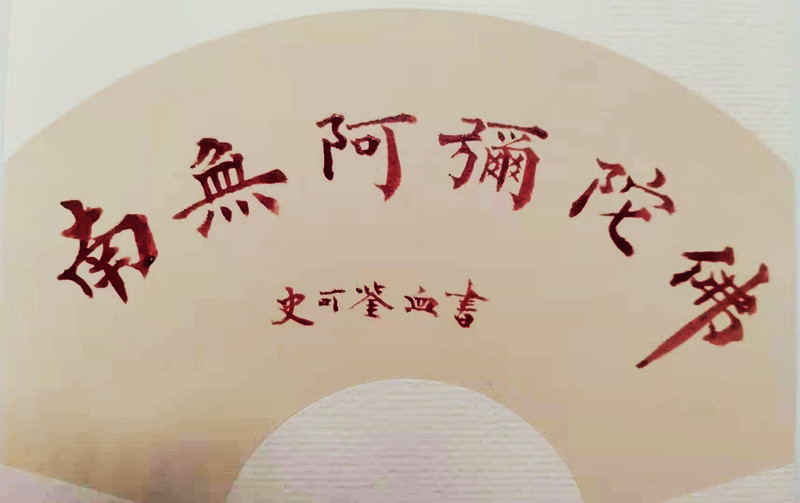 南無阿彌陀佛
史可鉴血書